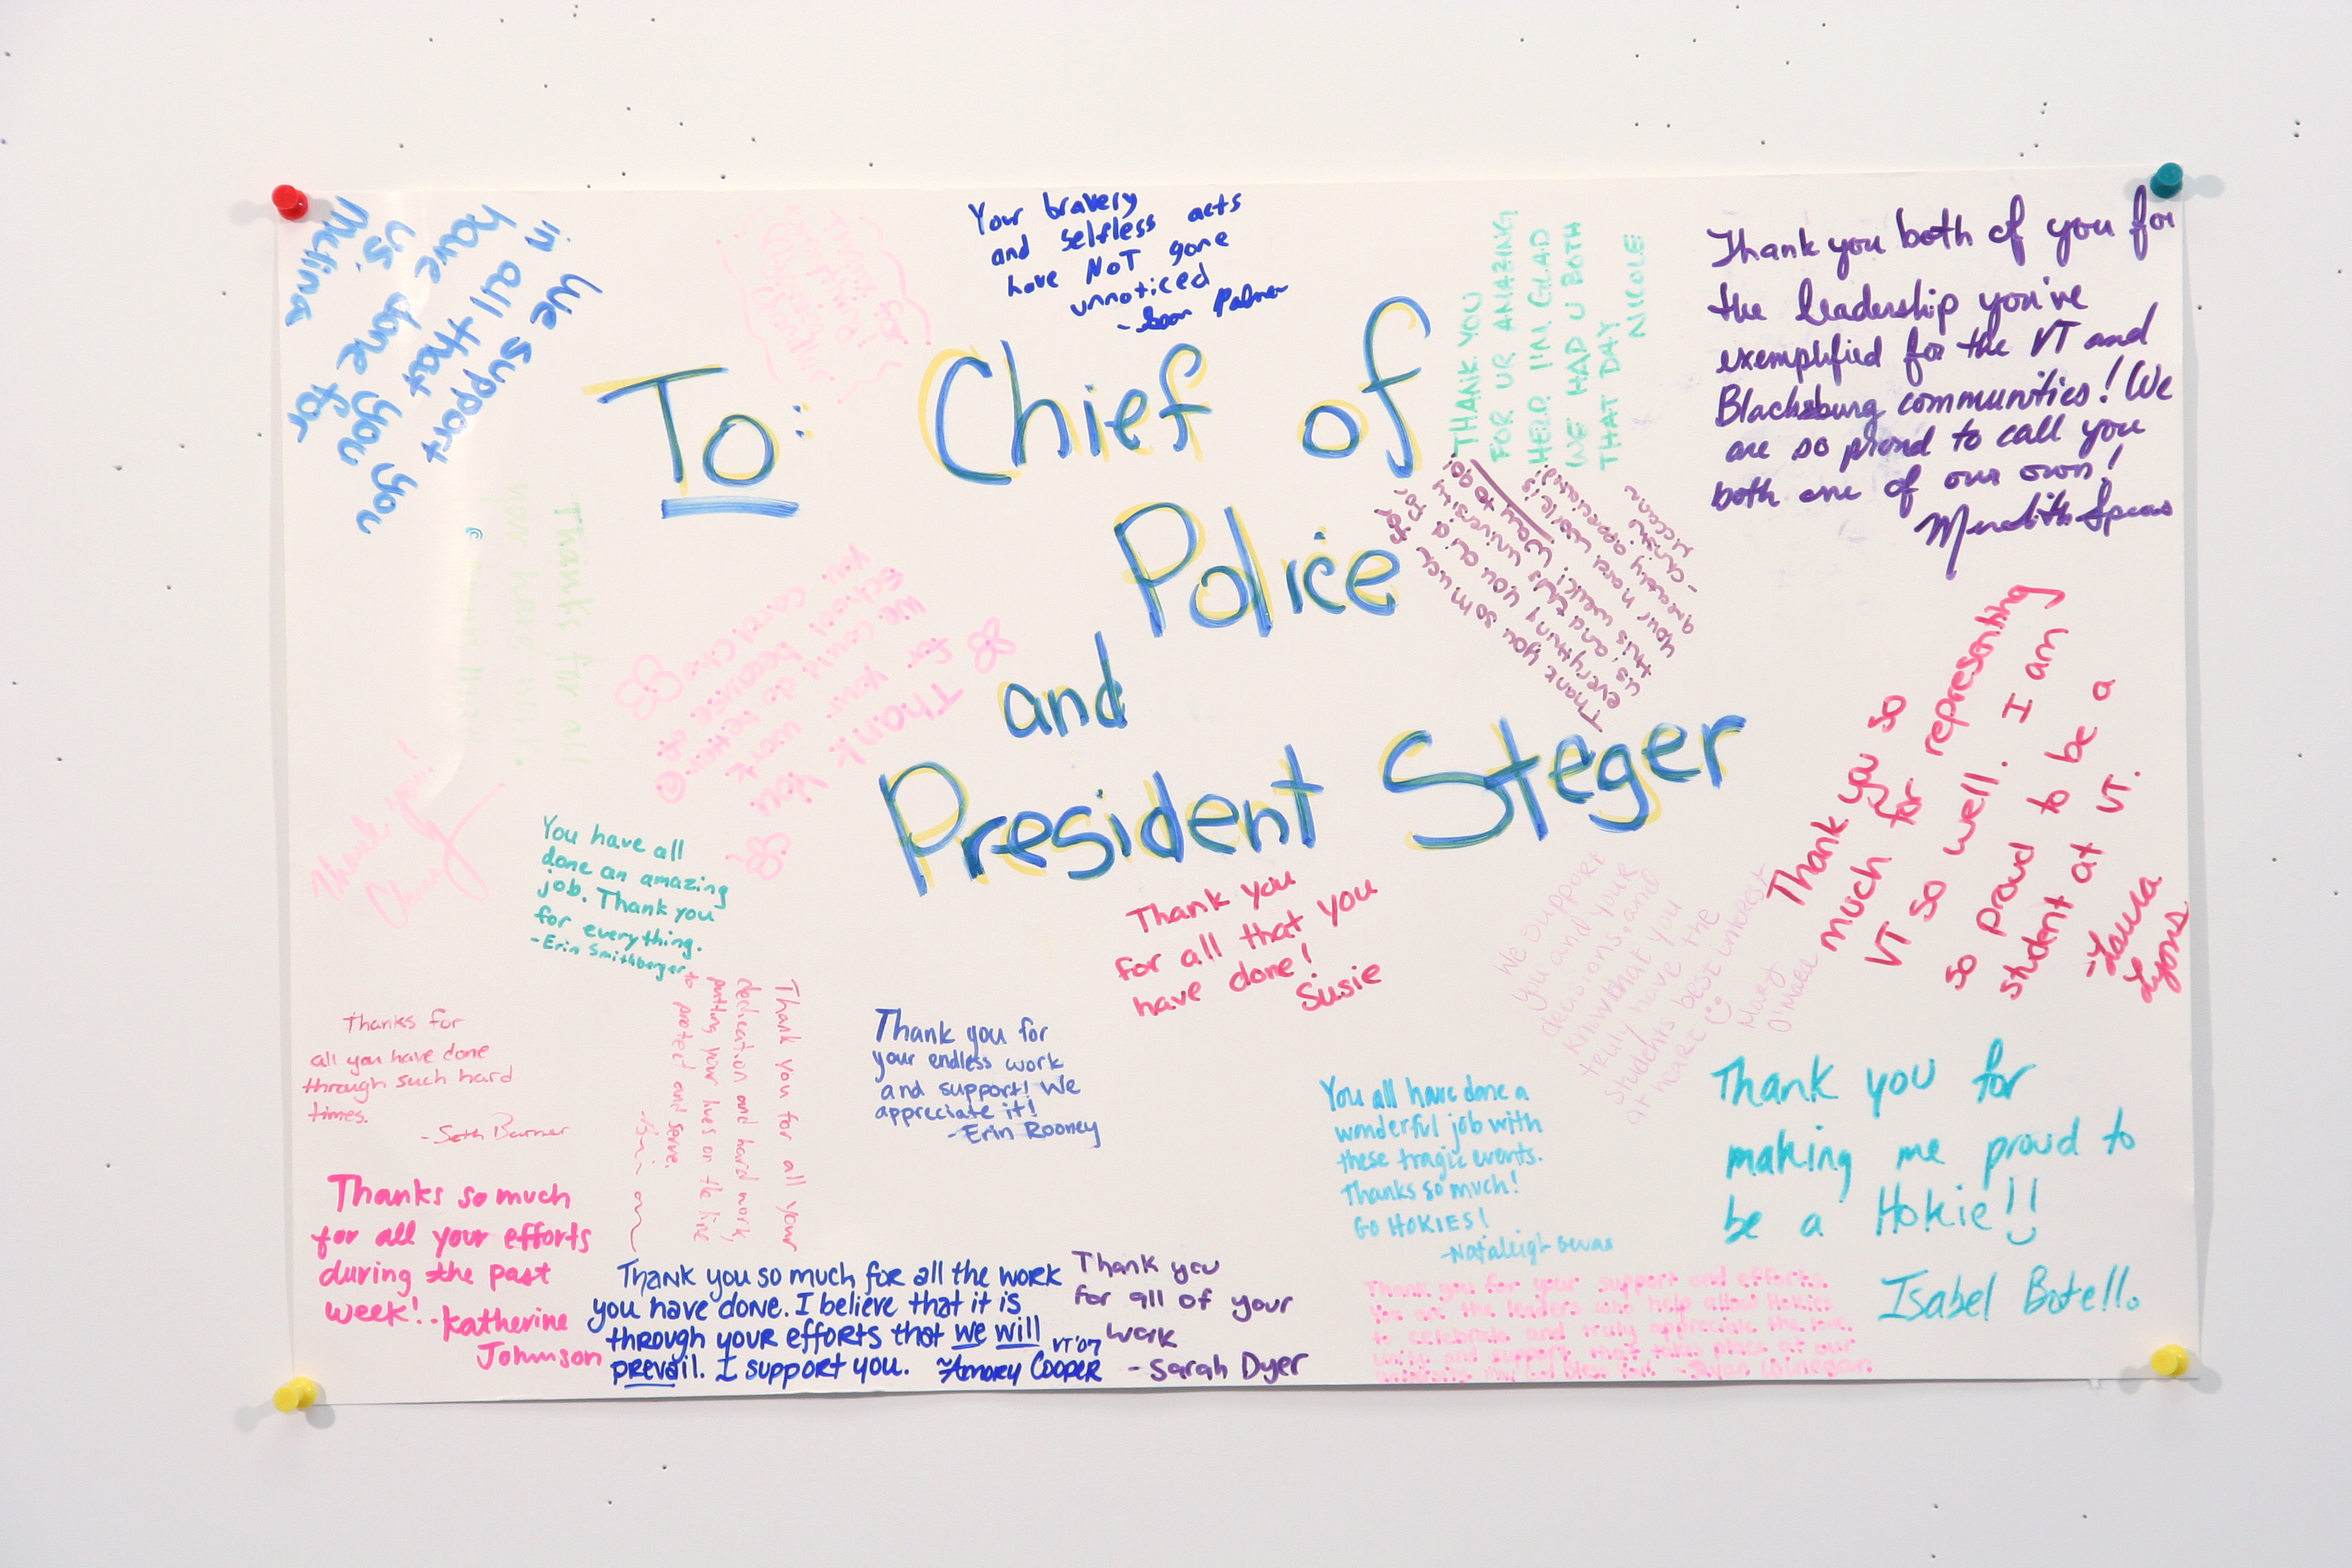 To: Chief of
Police
and
President Steger
We support you
in all that you
have done for
us.
Your bravery
and selfless acts
have NOT gone
unnoticed
Palmer
THANK YOU
FOR UR AMAZING
HELP. I'M GLAD
WE HAD U BOTH
THAT DAY
NICOLE
Thank you both of you for
the leadership you've
exemplified for the VT and
Blacksburg communities! We
are so proud to call you
both one of our own!
Meredith Spears
Thanks for all
your hard work.
Thank you
for your work
Thank you so much for
everything you did for
Thank you so
much for representing
VT so well. I am
so proud to be a
student at VT.
-Laura
Lyons
Thank you!
You have all
done an amazing
job. Thank you
for everything.
-Erin Smithberger
Thank you
for all that you
have done!
Susie
We support
you and your
decisions, and
know that you
truly have the
students best interest
at heart
Mary
O'Mara
Thanks for
all you have done
through such hard
times.
-Seth Barner
Thank you for all your
dedication and hard work,
putting your lives on the line
to protect and serve.
Thank you for
your endless work
and support! We
appreciate it!
-Erin Rooney
You all have done a
wonderful job with
these tragic events.
Thanks so much!
GO HOKIES!
-Nataleigh
Thank you for
making me proud to
be a Hokie!!
Isabel Botello
Thanks so much
for all your efforts
during the past
week! -Katherine
Johnson
Thank you so much for all the work
you have done. I believe that it is
through your efforts that we will
prevail. I support you. ~Amory Cooper VT'07
Thank you
for all of your
work
-Sarah Dyer
Thank you for your support and efforts.
You are the leaders who help allow Hokies
to celebrate and truly appreciate the love,
unity, and support that takes place at our